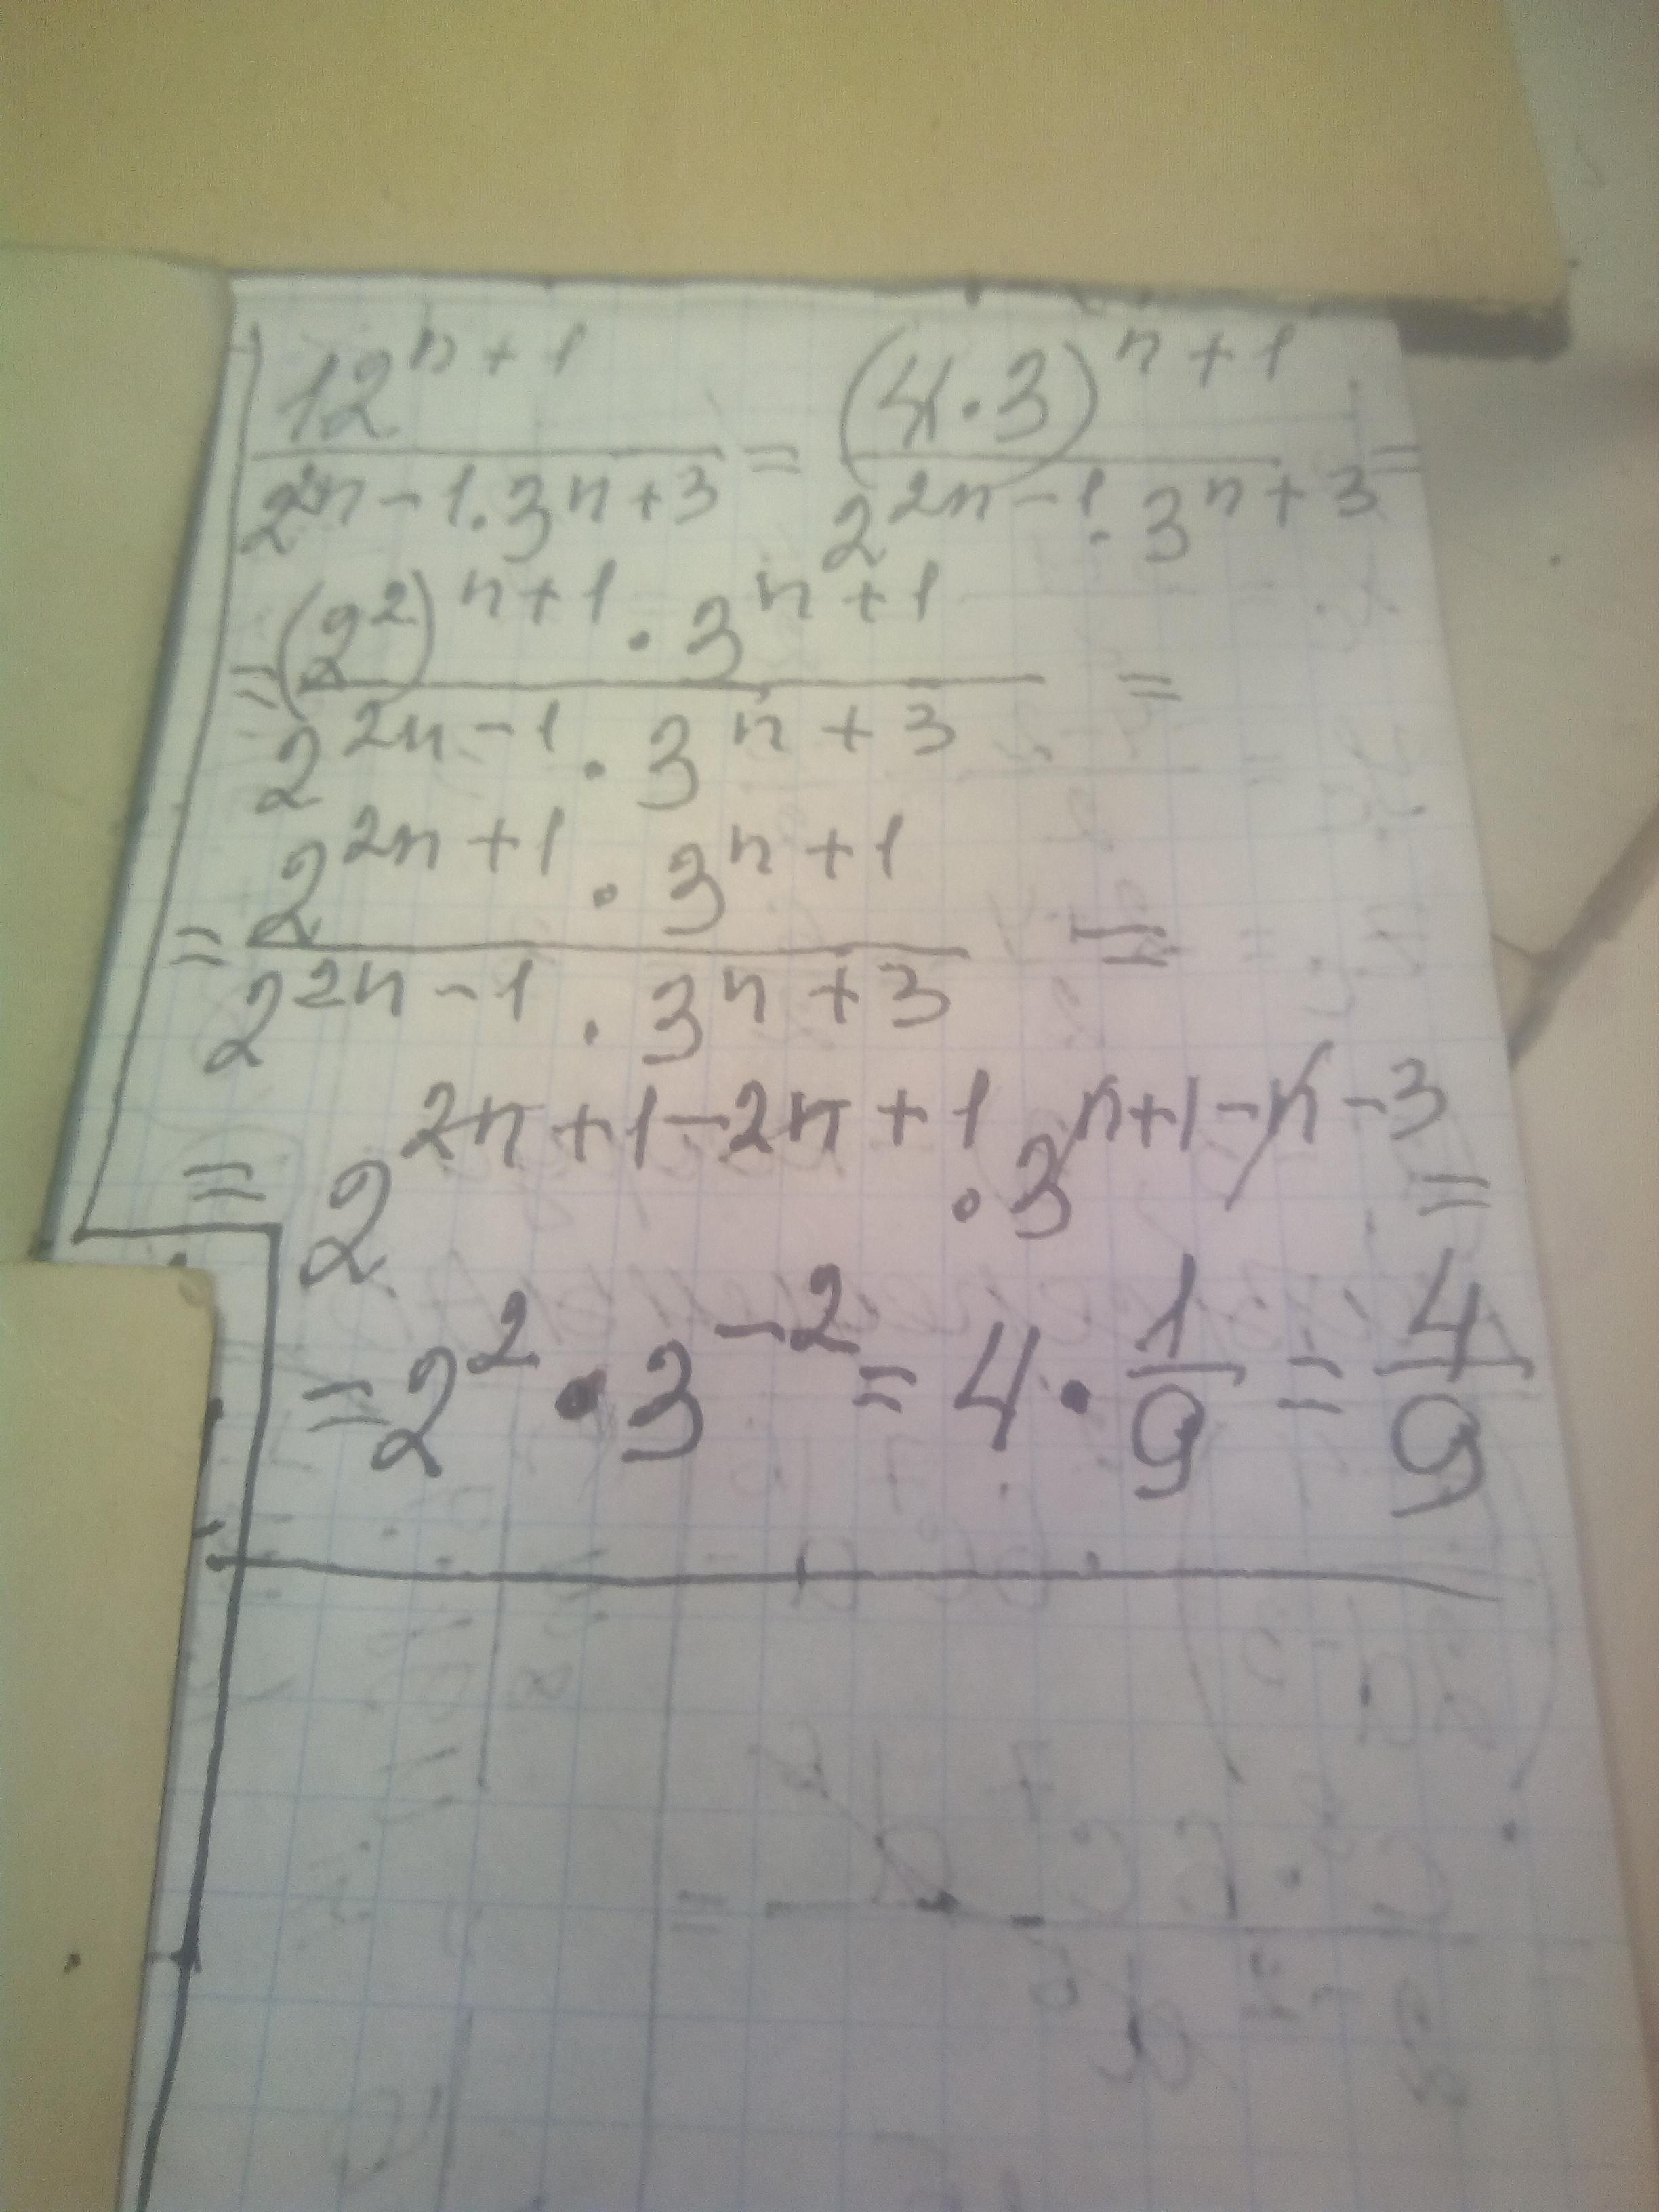 12^(n+1) / (2^(2n-1) · 3^(n+3)) = (4·3)^(n+1) / (2^(2n-1) · 3^(n+3)) =
= (2^2)^(n+1) · 3^(n+1) / (2^(2n-1) · 3^(n+3)) =
= 2^(2n+1) · 3^(n+1) / (2^(2n-1) · 3^(n+3)) =
= 2^(2n+1-2n+1) · 3^(n+1-n-3) =
= 2^2 · 3^(-2) = 4 · 1/9 = 4/9